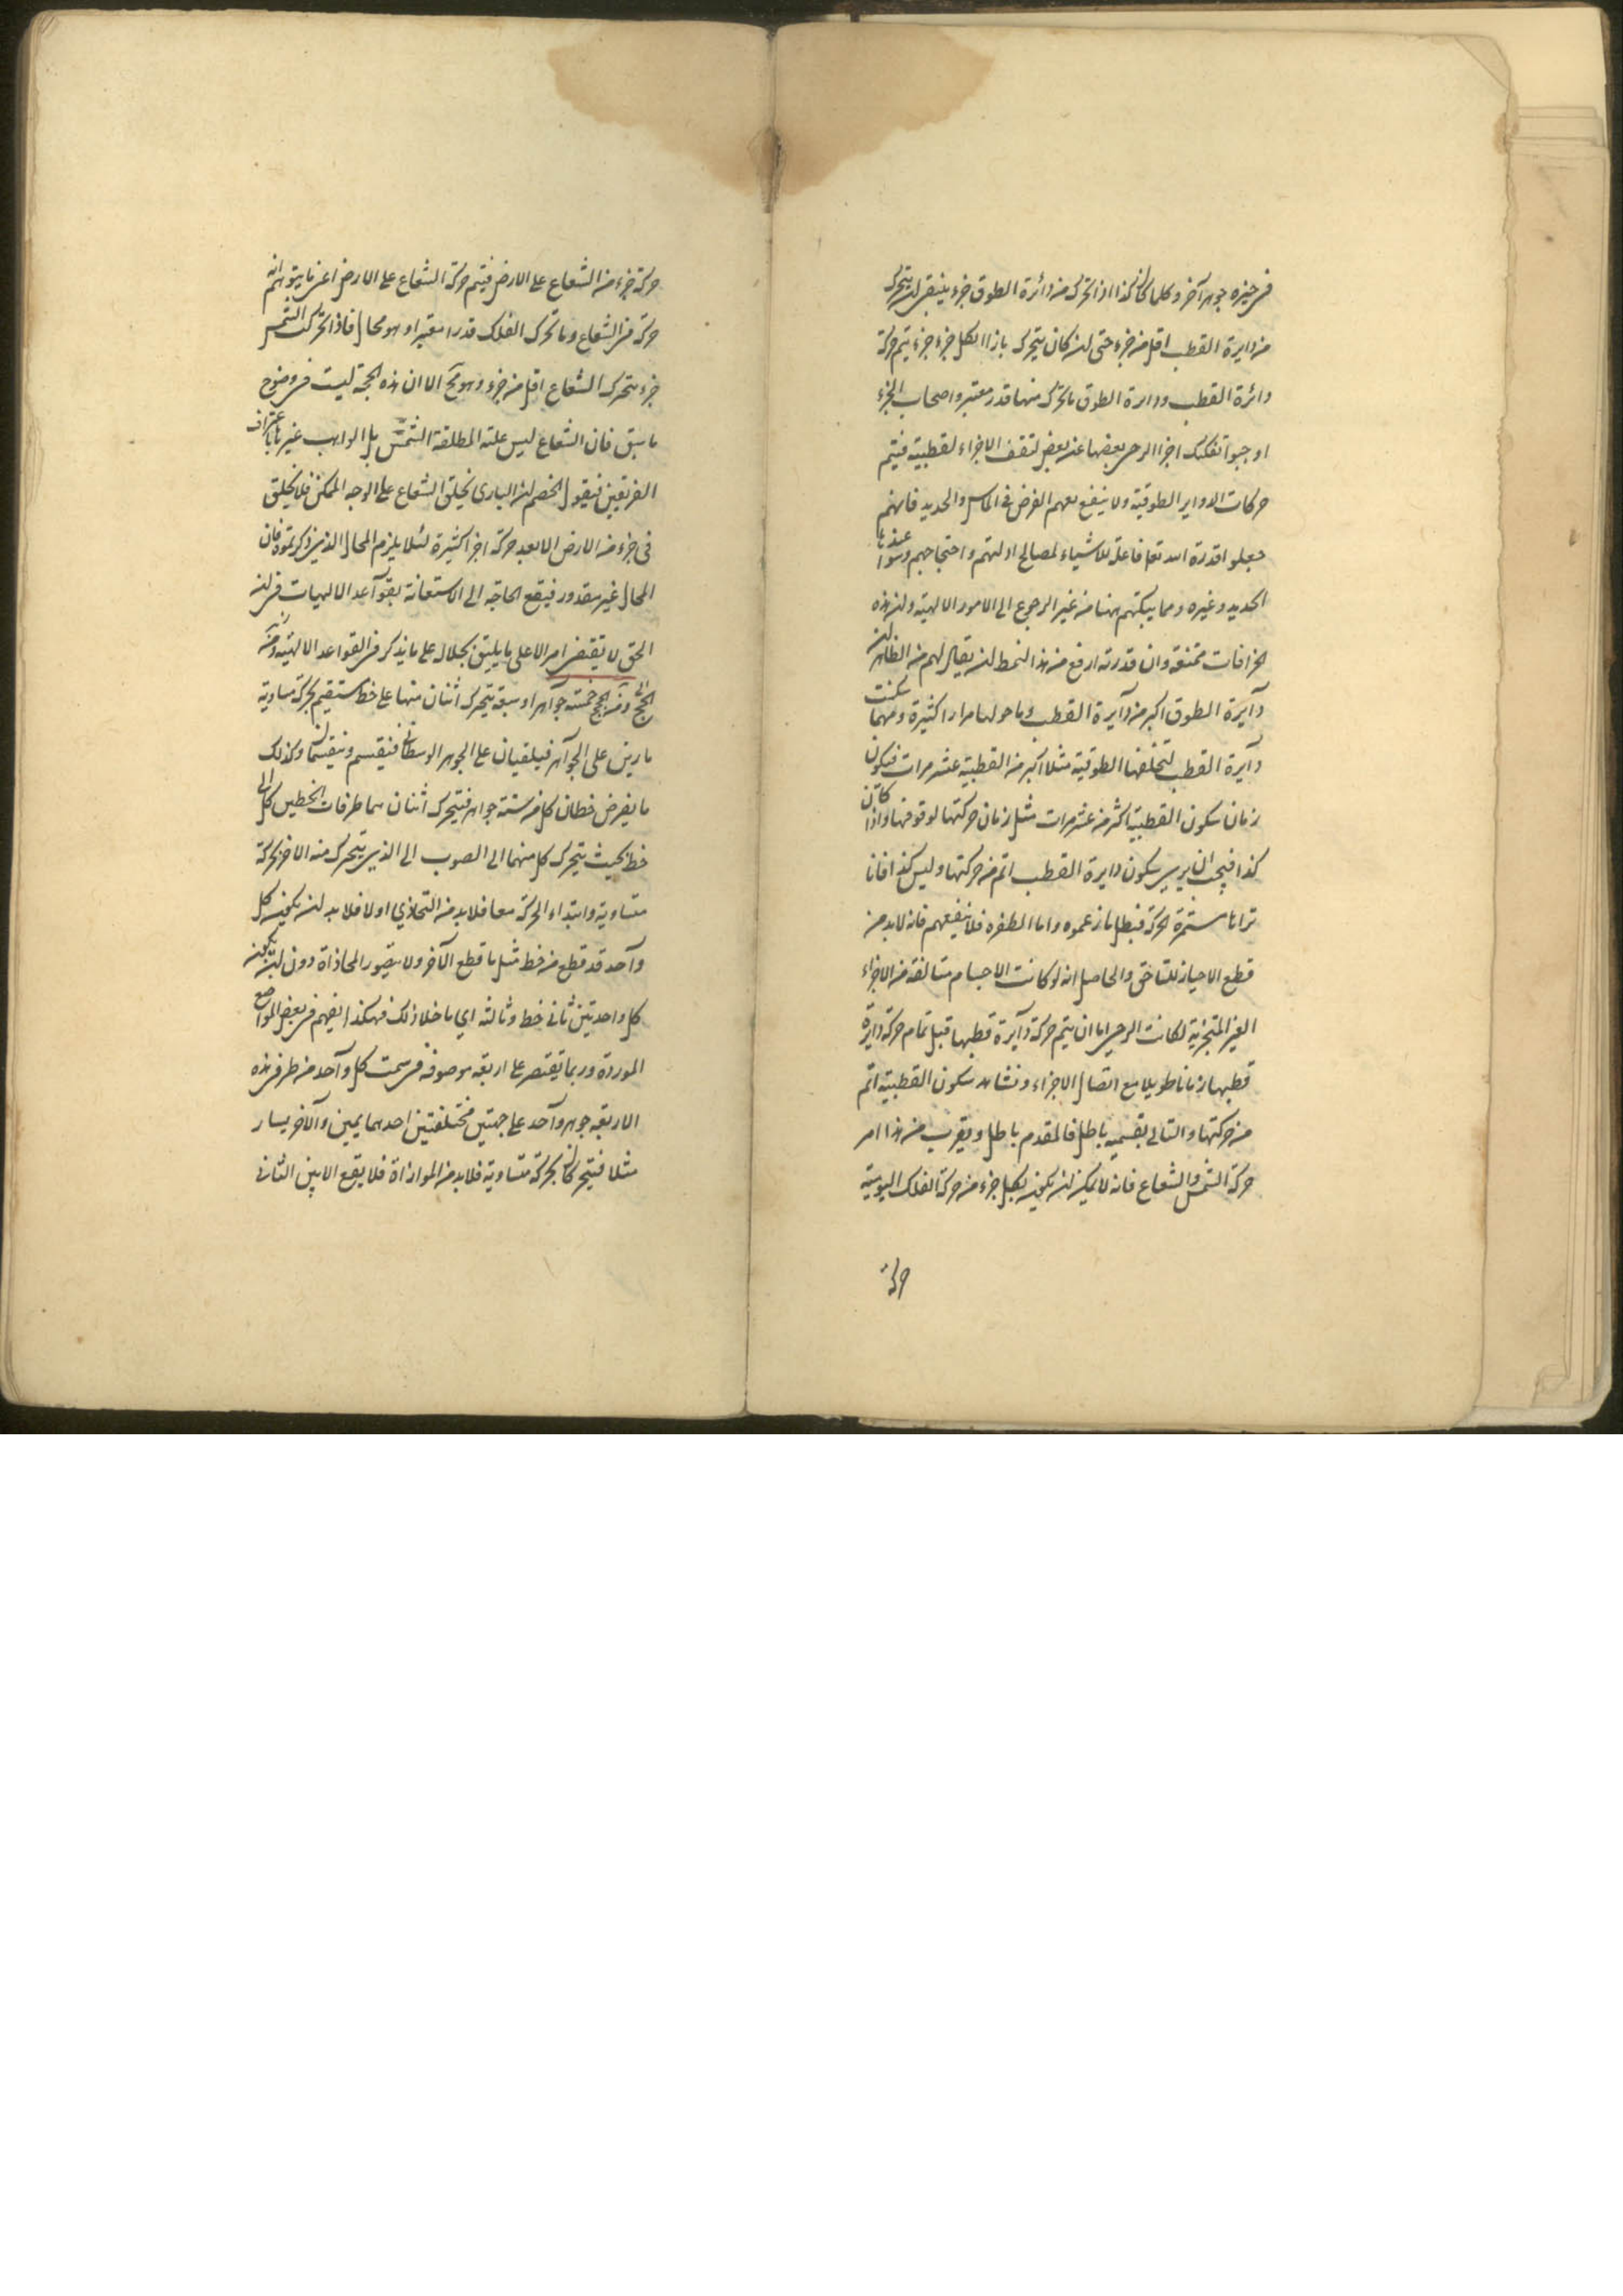 في حيزه جوهر آخر وكلما كان كذا اذا تحرك من دائرة الطوق جزء ينبغي ان يتحرك
من دايرة القطب اقل من جزء حتى لو كان يتحرك بازا كل جزء جزء يتم حركة
دائرة القطب ودايرة الطوق ما تحرك منها قدر معتبر واصحاب الجزء
اوجبوا تفكيك اجزا الرحى بعضها عن بعض لتقف الاجزاء القطبية فيتم
حركات الدواير الطوقية ولا ينفع معهم الفرض في الماس والحديد فانهم
جعلوا قدرة الله تعا فاعلة للاشياء لمصالح ادلتهم واحتجاجهم وسوا عندها
الحديد وغيره ومما يبكتهم هنا من غير الرجوع الى الامور الالهية وان هذه
الخرافات ممتنعة وان قدرته ارفع من هذا النمط ان يقال لهم من الظاهر ان
دآيرة الطوق اكبر من دآيرة القطب وما حولها مرارا كثيرة ومهما سكنت
دآيرة القطب لتخلفها الطوقية مثلا اكبر من القطبية عشر مرات فيكون
زمان سكون القطبية اكثر من عشر مرات مثل زمان حركتها لوقوفها واذا كان
كذا فيجب ان يرى سكون دايرة القطب اتم من حركتها وليس كذا فانا
نراها مستمرة الحركة فبطل ما زعموه واما الطفره فلا ينفعهم فانه لا بد من
قطع الاحياز للتاخق والحاصل انه لو كانت الاجسام متالفة من الاجزاء
الغير المتجزية لكانت الرحى اما ان يتم حركة دآيرة قطبها قبل تمام حركة دايرة
قطبها زمانا طويلا مع اتصال الاجزاء ونشاهد سكون القطبية اتم
من حركتها والتالي بقسميه باطل فالمقدم باطل ويقرب من هذا امر
حركة الشمس والشعاع فانه لا يمكن ان يكون لكل جزء من حركة الفلك اليومية
حركة
حركة جزء من الشعاع على الارض فيتم حركة الشعاع على الارض اعنى ما يتوهم انه
حركة من الشعاع وما تحرك الفلك قدرا معتبرا وهو محال فاذا تحركت الشمس
جزء يتحرك الشعاع اقل من جزء وهو مح الا ان هذه الحجة ليست في وضوح
ما سبق فان الشعاع ليس علته المطلقة الشمس بل الواهب غيرها باعتراف
الفريقين فيقول الخصم ان البارى يخلق الشعاع على الوجه الممكن فلا يخلق
فى جزء من الارض الا بعد حركة اجزا كثيرة لئلا يلزم المحال الذي ذكرتموه فان
المحال غير مقدور فيقع الحاجة الى الاستعانة بقوآعد الالهيات في ان
الحق لا يقتضى امرا الا على ما يليق بجلاله على ما يذكر في القواعد الالهية ومن
الحجج ومن الحجج خمسة جوآهر او سبعة يتحرك اثنان منها على خط مستقيم بحركة مساوية
مارين على الجوآهر فيلتقيان على الجوهر الوسطانى فينقسم وينقسما وكذلك
ما يفرض خطان كل من ستة جواهر فيتحرك اثنان هما طرفا الخطين كل الى
خط بحيث يتحرك كل منهما الى الصوب الى الذي يتحرك منه الاخر بحركة
متساوية وابتداء الحركة معا فلا بد من التحاذي اولا فلا بد ان يكون كل
وآحد قد قطع من خط مثل ما قطع الآخر ولا يتصور المحاذاة دون ان يكون
كل واحد بين ثانى خط وثالثه اي ما خلا ذلك فهكذا يفهم في بعض المواضع
الموردة وربما يقتصر على اربعة موصوفة في سمت كل وآحد من طرفى هذه
الاربعة جوهر وآحد على جهتين مختلفتين احدهما يمين والآخر يسار
مثلا فيتحركان بحركة متساوية فلا بد من الموازاة فلا يقع الا بين الثانى